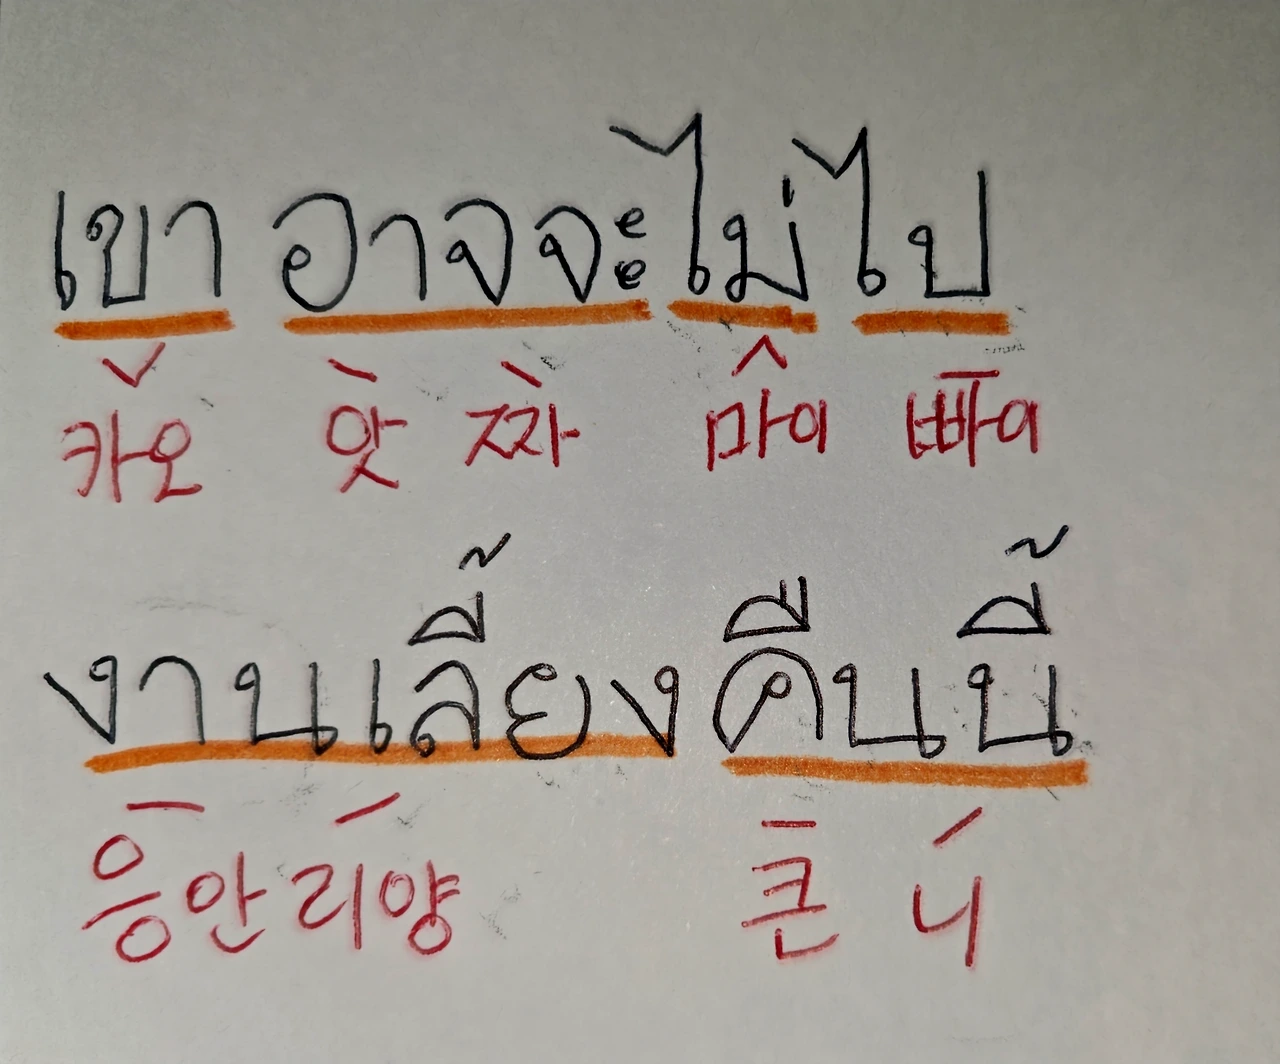 เขา อาจจะไม่ไป
카오 앗 짜 마이 빠이
งานเลี้ยงคืนนี้
응안 리양 큰 니